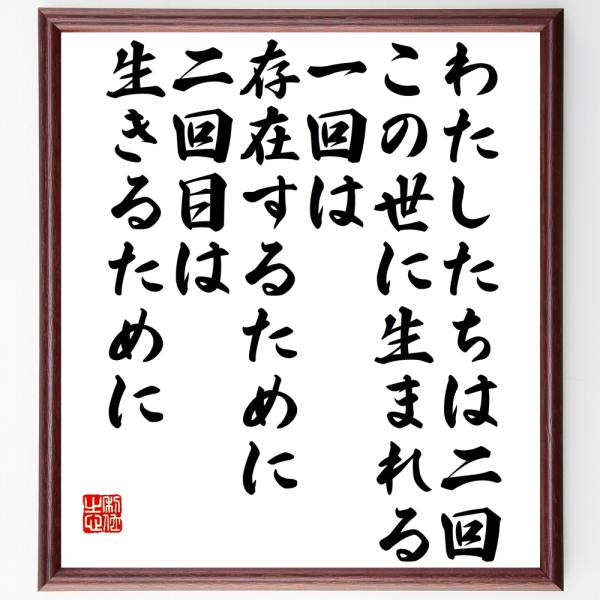 わたしたちは二回
この世に生まれる
一回は
存在するために
二回目は
生きるために